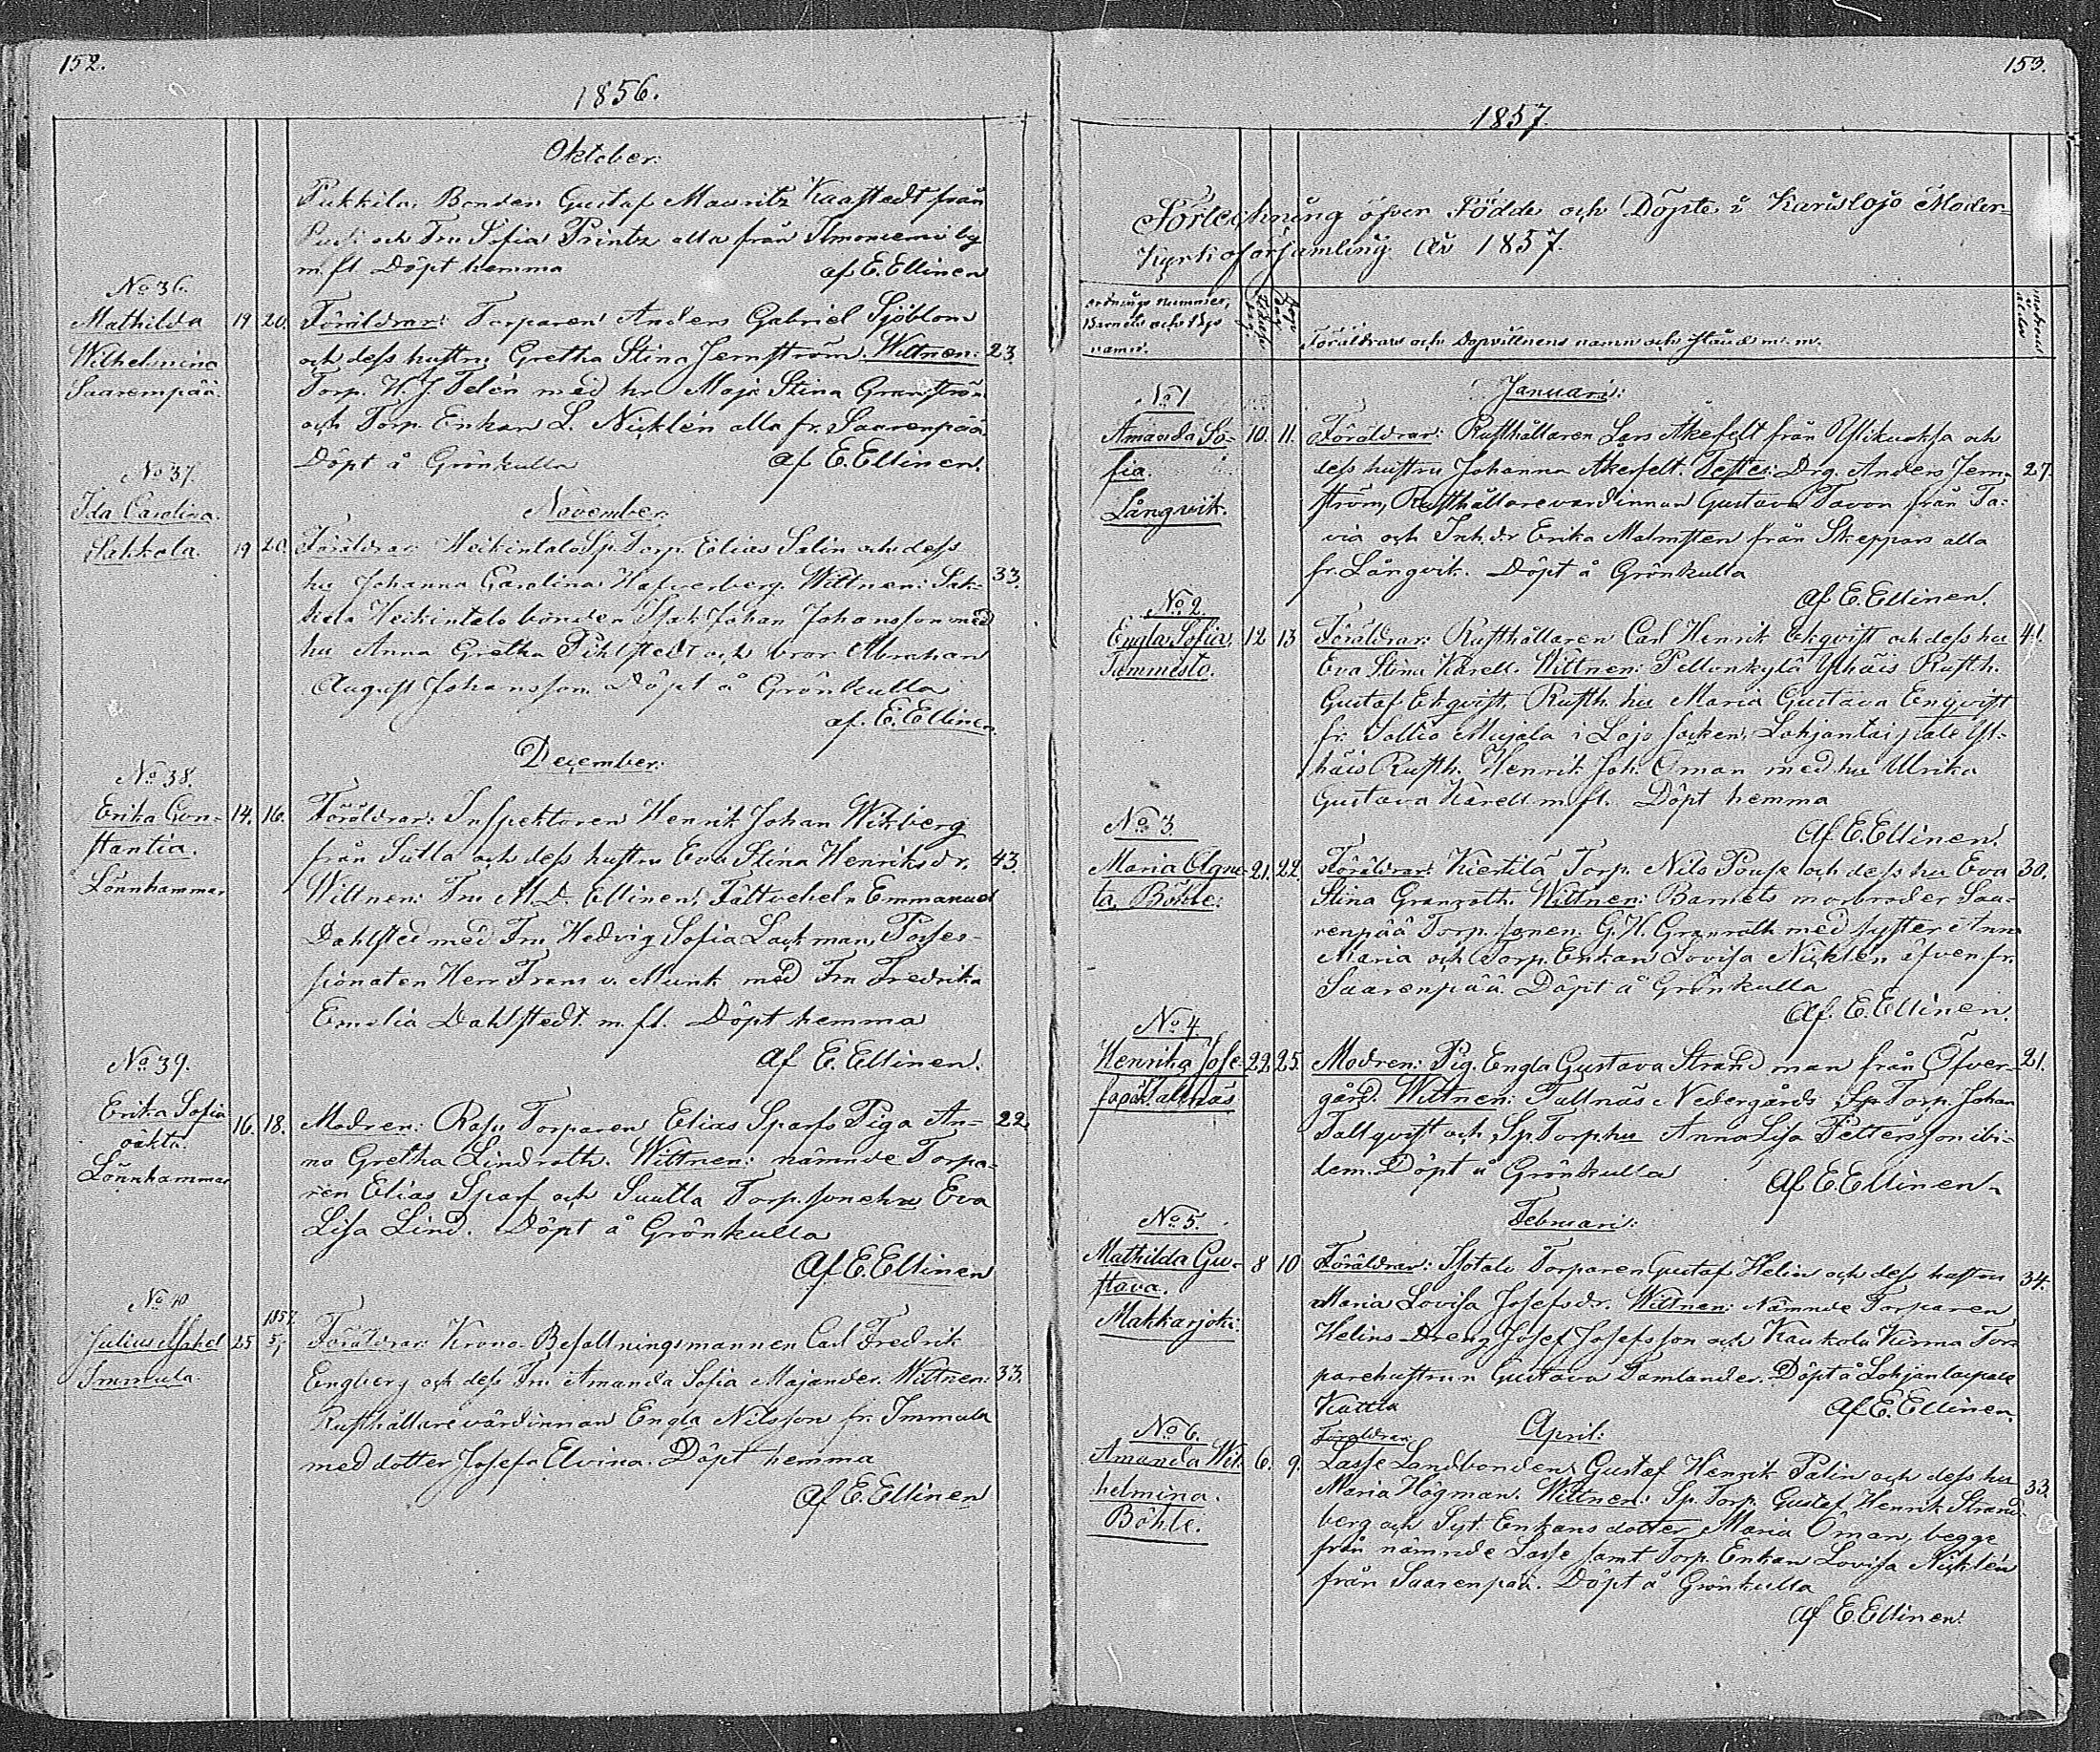 152.
1856.
Oktober:
Pukkila Bonden Gustaf Mauritz Kaastedt från
och Fru Sofia Printz alla från Ilmoniemi by
m. fl. Döpt hemma af E. Ellinen
No 36.
Mathilda
Wilhelmina
Saarempää.
19 20. Föräldrar: Torparen Anders Gabriel Sjöblom
och dess hustru Gretha Stina Jernström. Wittnen: 23.
Torp. H. J. Telén med hu Maja Stina Granström
och Torp. Enkan L. Nicklén alla fr. Saarenpää
Döpt å Grönkulla af E. Ellinen.
November.
No 37.
Ida Carolina.
Sakkola.
19 20. Föräldrar: Heikintalo Sp. Torp. Elias Salin och dess
hu Johanna Carolina Hafverberg. Wittnen: Sak- 33.
kola Heikintalo bonden Isak Johan Johansson med
hu Anna Gretha Pihlstedt och bror Abraham
August Johansson. Döpt å Grönkulla
af. E. Ellinen.
December:
No 38.
Erika Con-
stantia.
Lönnhammar
14. 16. Föräldrar: Inspektoren Henrik Johan Wikberg
från Sutla och dess hustru Eva Stina Henriksdr. 43.
Wittnen: Fru M. D. Ellinen, Fältvebeln Emmanuel
Dahlsted med Fru Hedvig Sofia Lackman, Posses-
sionaten Herr Frans v. Munk med Fru Fredrika
Emelia Dahlstedt m. fl. Döpt hemma
Af E. Ellinen.
No 39.
Erika Sofia
oäkta.
Lönnhammar
16. 18. Modren: Rasu Torparen Elias Sparfs Piga An- 22.
na Gretha Lindroth. Wittnen: nämnde Torpa-
ren Elias Sparf och Suutla Torp. sonehu Eva
Lisa Lind. Döpt å Grönkulla
Af E. Ellinen
No 40
Julius Axel
Immula.
1857.
25 5. Föräldrar: Krono Befallningsmannen Carl Fredrik
Engberg och dess Fru Amanda Sofia Majander. Wittnen: 33.
Rusthållarevärdinnan Engla Nilsson fr. Immula
med dotter Josefa Elvina. Döpt hemma
Af E. Ellinen
153.
1857.
Förteckning öfver Födde och Döpte i Karislojo Moder-
Kyrkoförsamling År 1857.
ordnings nummer,
Barnets och Bys
namn.
Föräldrars och Dopvittnens namn och stånd m. m.
Januari:
No 1
Amanda So-
fia.
Långvik.
10. 11. Föräldrar: Rusthållaren Lars Åkefelt från Ylikuoksa och
dess hustru Johanna Åkerfelt. Testes: Drg. Anders Jern- 27.
ström, Rusthållarevärdinnan Gustava Tavon från Ta-
via och Inh. dr Erika Malmsten från Skeppars alla
fr. Långvik. Döpt å Grönkulla
Af E. Ellinen.
No 2.
Engla Sofia.
Tammisto.
12 13 Föräldrar: Rusthållaren Carl Henrik Ekqvist och dess hu 41.
Eva Stina Karell. Wittnen: Pellonkylä Ylhäis Rusth.
Gustaf Ekqvist, Rusth. hu Maria Gustava Enqvist
fr. Sallio Mujala i Lojo socken, Lohjantaipale Yl-
häis Rusth. Henrik Joh. Öman med hu Ulrika
Gustava Karell m. fl. Döpt hemma
Af E. Ellinen.
No 3.
Maria Agne-
ta. Böhle:
21. 22. Föräldrar: Kiertilä Torp. Nils Pouse och dess hu Eva 30.
Stina Granroth. Wittnen: Barnets morbroder Saa-
renpää Torp. sonen G. H. Granroth med syster Anna
Maria och Torp. Enkan Lovisa Nicklén äfven fr.
Saarenpää. Döpt å Grönkulla
Af. E. Ellinen.
No 4.
Henrika Jose-
fa oä. Tallnäs
22 25. Modren: Pig. Engla Gustava Strandman från Öfver- 21.
gård. Wittnen: Tallnäs Nedergårds Sp. Torp. Johan
Tallqvist och Sp. Torp. hu Anna Lisa Pettersson ibi-
dem. Döpt å Grönkulla Af E. Ellinen.
Februari:
No 5.
Mathilda Gu-
stava.
Makkarjoki:
8 10 Föräldrar: Isotalo Torparen Gustaf Helin och dess hustru 34.
Maria Lovisa Josefsdr. Wittnen: Nämnde Torparen
Helins Dreng Josef Josefsson och Kaukola Kurma Tor-
parehustrun Gustava Tamlander. Döpt å Lohjantaipale
Kuttla Af E. Ellinen.
April:
No 6.
Amanda Wil-
helmina.
Böhle.
Föräldrar:
6. 9. Lasse Landbonden Gustaf Henrik Palin och dess hu 33.
Maria Högman. Wittnen: Sp. Torp. Gustaf Henrik Strand-
berg och Syt. Enkans dotter Maria Öman, begge
från nämnde Lasse samt Torp. Enkan Lovisa Nicklén
från Saarenpää. Döpt å Grönkulla
Af E. Ellinen.